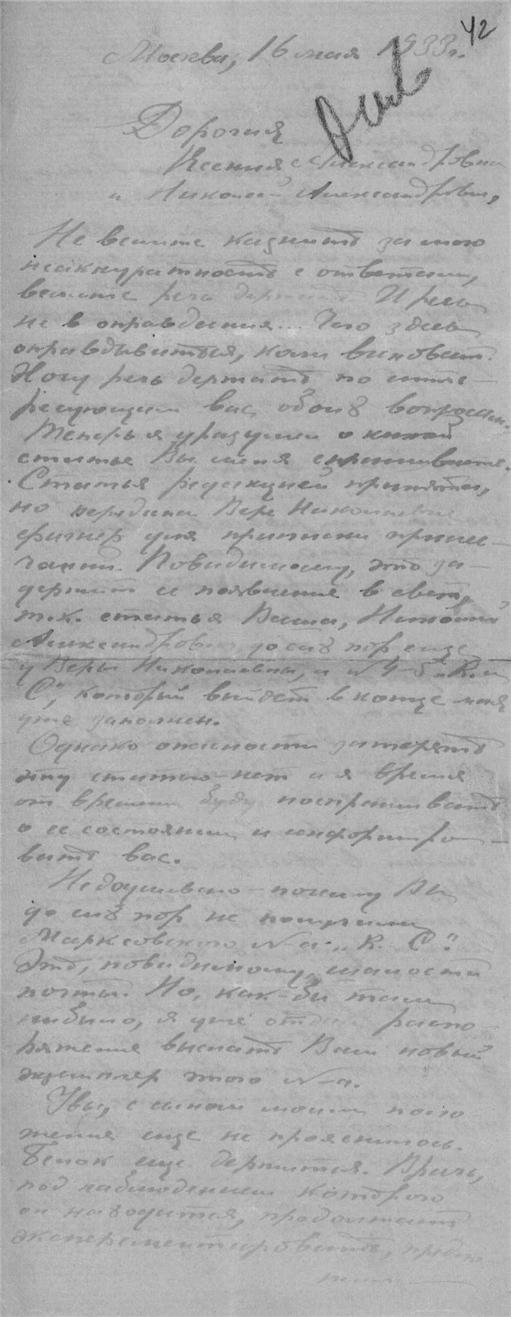 42
Москва, 16 мая 1933 г.
Дорогия
Ксения Александровна
и Николай Александрович,
Не велите казнить за мою
неаккуратность с ответами,
велите речь держать. И речь
не в оправдания... Чего здесь
оправдываться, коли виноват.
Хочу речь держать по инте-
ресующим вас обоих вопросам.
Теперь я уразумел о какой
статье Вы меня спрашиваете.
Статья редакцией принята,
но передана Вере Николаевне
Фигнер для приписки приме-
чаний. Повидимому, это за-
держит ее появление в свет,
т.к. статья Ваша, Николай
Александрович, до сих пор еще
у Веры Николаевны, а № 4-5 "К. и
С", который выйдет в конце мая
уже заполнен.
Однако опасности затерять
эту статью нет и я время
от времени буду поспрашивать
о ее состоянии и информиро-
вать вас.
Недоумеваю - почему Вы
до сих пор не получили
Марксовского №-а "К. и С".
Это, повидимому, шалости
почты. Но, как-бы там
нибыло, я уже отдал распо-
ряжение выслать Вам новый
экземпляр этого №-а.
Увы, с сыном моим поло-
жение еще не прояснилось.
Белок еще держится. Врач,
под наблюдением которого
он находится, продолжает
экспериментировать,